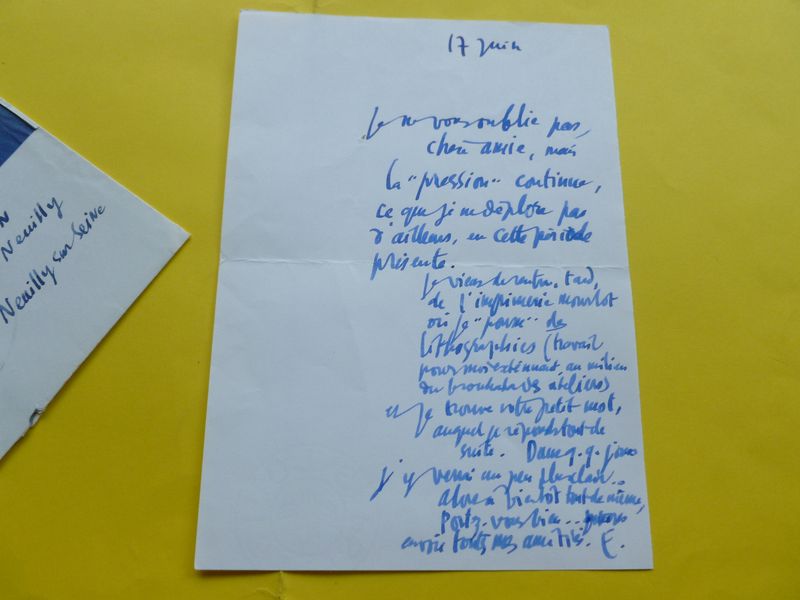 17 juin
Je ne vous oublie pas,
chère amie, mais
la "pression" continue,
ce que je ne déplore pas
d'ailleurs, en cette période
présente.
Je viens de rentrer, tard,
de l'imprimerie Mourlot
où je "ponds" des
lithographies (travail
pour moi exténuant, au milieu
du brouhaha des ateliers)
et je trouve votre petit mot,
auquel je réponds tout de
suite. Dans q.q. jours
j'y verrai un peu plus clair..
alors à bientôt tout de même,
Portez-vous bien...
envoie toutes mes amitiés. E.
N
Neuilly
Neuilly sur Seine